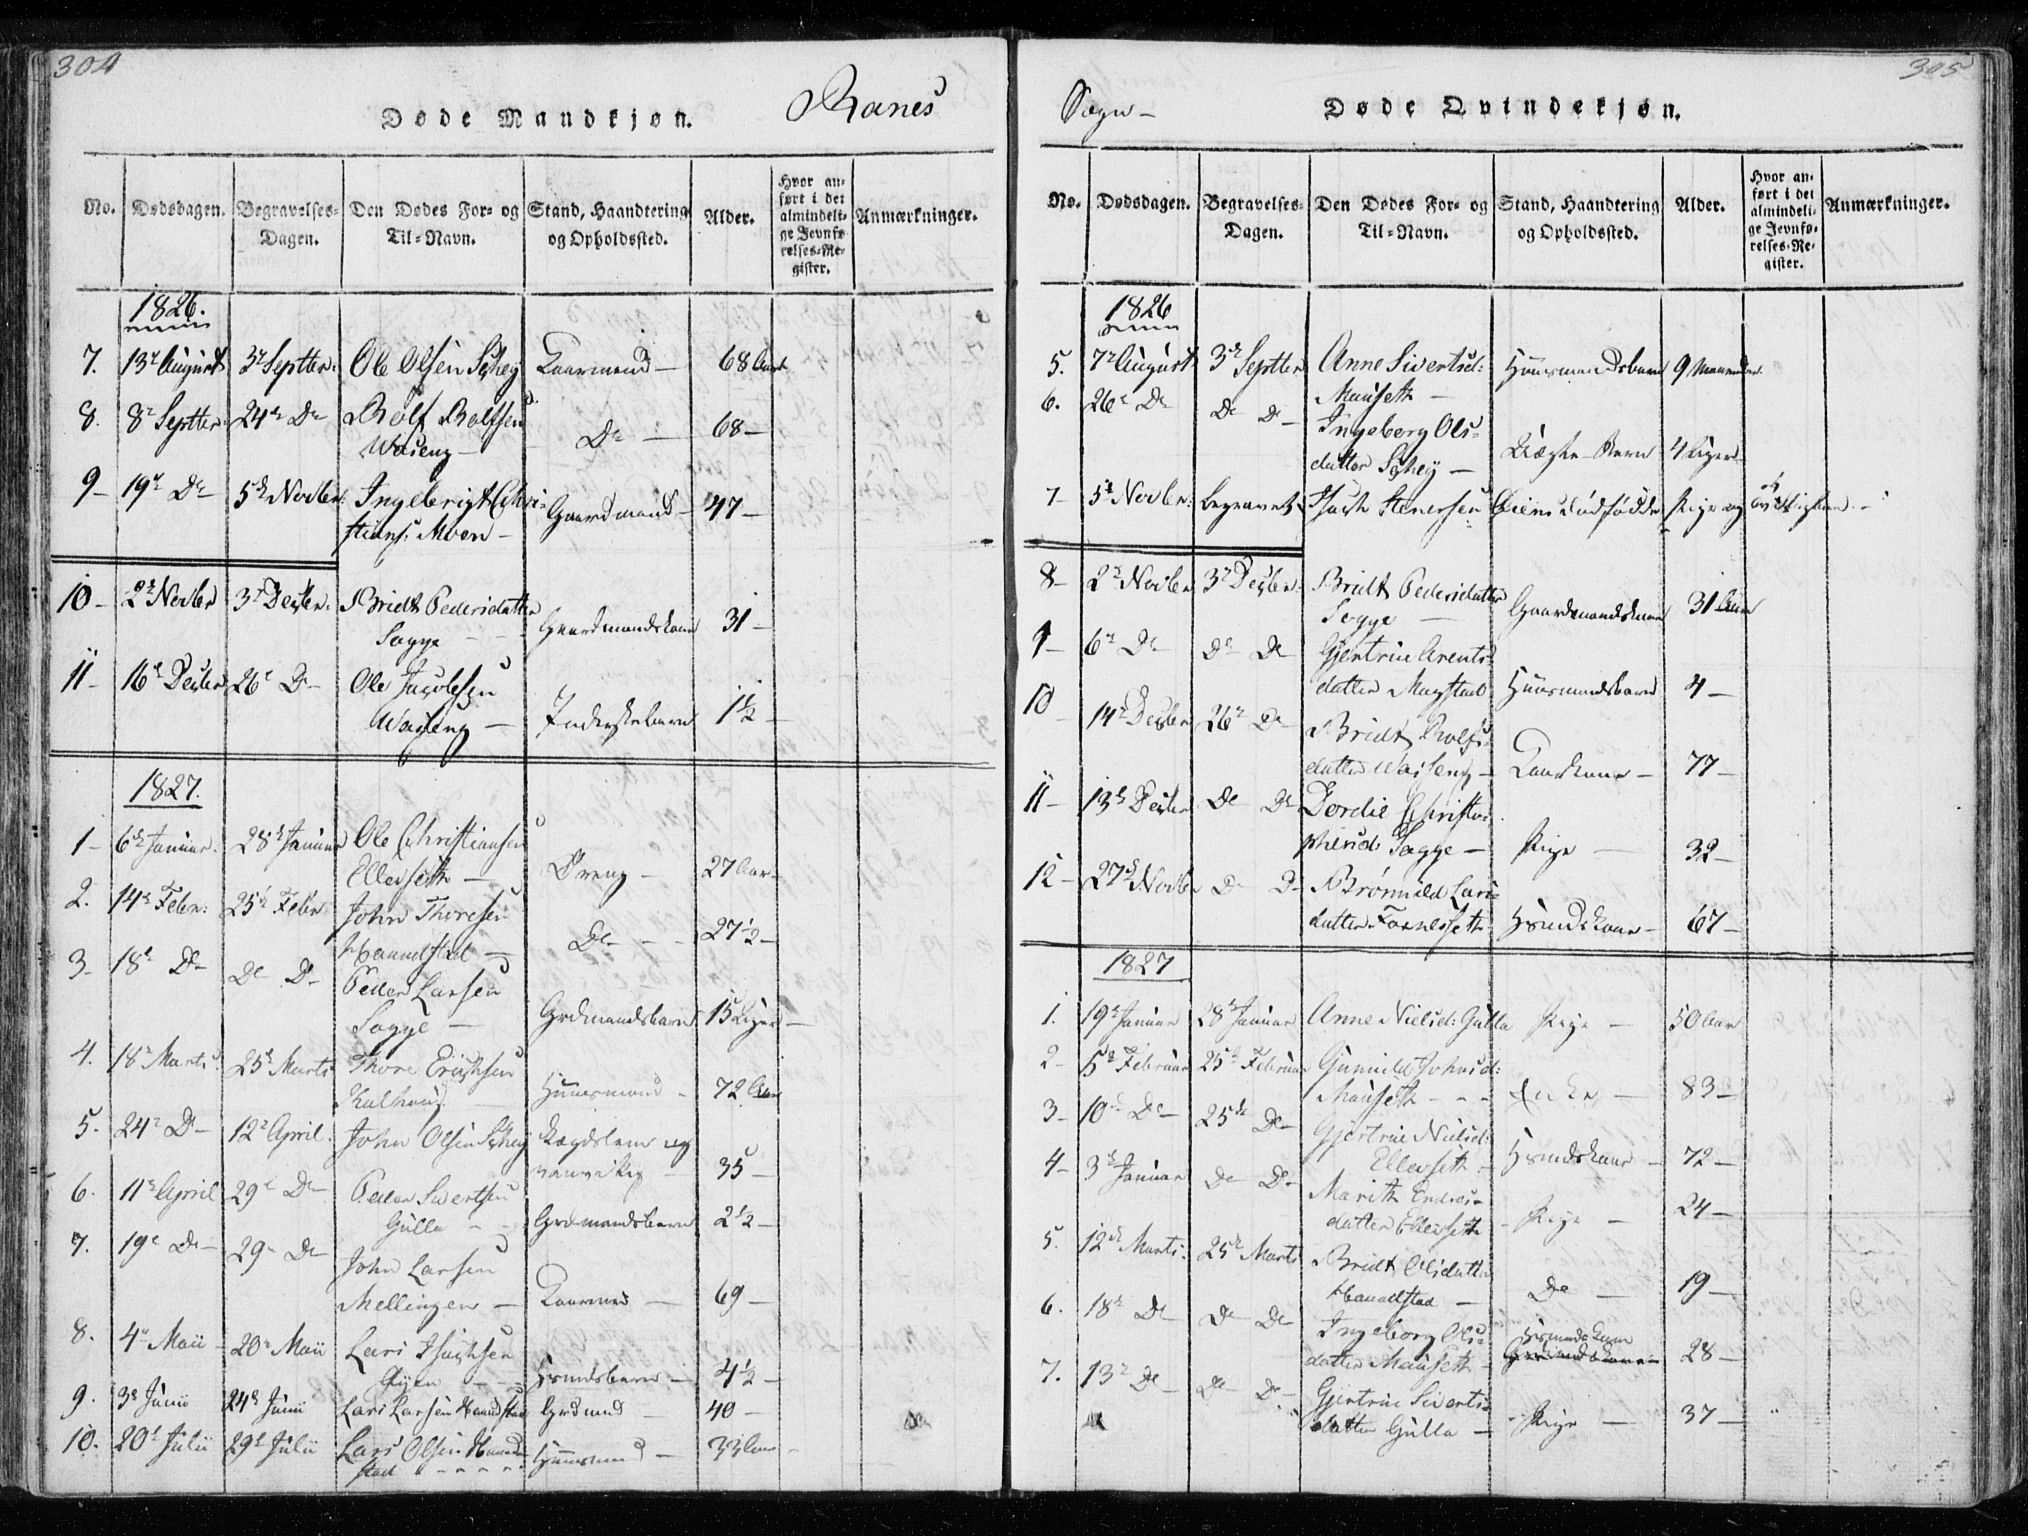 304
Døde Mandkjøn.
Ranes
No.
Dødsdagen.
Begravelses-Dagen.
Den Dødes For- og Til-Navn.
Stand, Haandtering og Opholdssted.
Alder.
Hvor anført i det almindelige Jevnførelses-Register.
Anmærkninger.
1826.
7. 13de August 3de Septbr: Ole Olsen Schey Kaarmand – 68 Aar
8. 8de Septbr: 24de Do Rolf Rolfsen
Waseng – Do – 68 –
9 – 19de Do 5te Novbr: Ingebrigt Chri-
stians: Moen – Gaardmand – 47 –
10 – 2de Novbr 3de Decbr. Bridt Pedersdatter
Sagge – – Gaardmandskone 31 –
11 – 16de Decbr 26de Do Ole Jacobsen
Waseng – Inderstebarn 1½ –
1827.
1 – 6te Januar. 28de Januar Ole Christiansen
Ellerseth – Dreng – 27 Aar –
2. 14de Febr: 25de Febr: John Thoresen
Haandstad – Do – – 27½ –
3 – 18de Do Do Do Peder Larsen
Sagge – Grdmandsbarn 15 Uger –
4. 18de Marts 25de Marts Thore Erichsen
Huusmand – 72 Aar
5. 24de Do – 12te April. John Olsen Schey Lægdslem og
35 –
6. 11te April 29de Do Peder Sivertsen
Gulla – – Grdmandsbarn 2½ –
7. 19de Do – 29de Do John Larsen
Mellingen – Kaarmand – 69 –
8. 4de Maii – 20de Maii Lars Isachsen
Øyen – – Hsmdsbarn – 4½ –
9. 3de Junii 24de Junii Lars Larsen Haandstad Grdmand – 40 –
10. 20de Julii 29de Julii Lars Olsen Haand-
stad – – – – Huusmand – 33 Aar –
305
Sogn –
Døde Qvindekjøn.
No.
Dødsdagen.
Begravelses-Dagen.
Den Dødes For- og Til-Navn.
Stand, Haandtering og Opholdssted.
Alder.
Hvor anført i det almindelige Jevnførelses-Register.
Anmærkninger.
1826
5. 7de August 3de Septbr Anne Sivertsd:
Mauseth – Huusmandsbarn 9 Maaneder
6. 26de Do Do Do – Ingeborg Ols-
datter Schey – Uægte Barn 4 Uger –
7 – 5te Novbr: begravet Isach Stenersen Øiens dødfødde Pige og
8 – 2de Novbr 3de Decbr: Bridt Pedersdatter
Sagge – Gaardmandskone 31 Aar
9 – 6te Do Do Do Gjertrue Arents-
datter Magstad Huusmandsbarn 4 –
10 14de Decbr 26de Do Bridt Rolfs-
datter Waseng – Kaarkone – 77 –
11 – 13de Decbr Do Do Dordie Christo-
phersd: Sagge – Pige – 32 –
12 – 27de Novbr Do Do Brønnild Lars-
datter Fornesseth Hsmdskone – 67 –
1827
1. 19de Januar 28de Januar Anne Nielsd: Gulla Pige – 50 Aar
2 – 5te Februar 25de Februar Gunnild Johnsd:
Mauseth – – – Enke – 83 –
3 – 10de Do – 25de Do – Gjertrue Nielsd:
Ellerseth – Hsmdskone – 72 –
4 – 3de Januar Do Do – Marith Endres-
datter Ellerseth – Pige – 24 –
5. 12de Marts: 25de Marts Bridt Olsdatter
Haandstad – Do – 19 –
6. 18de Do Do Do Ingeborg Ols-
datter Mauseth – Hsmdskone 28 –
7. 13de Do – Do Do – Gjertrue Siverts-
datter Gulla – Pige – 37 –